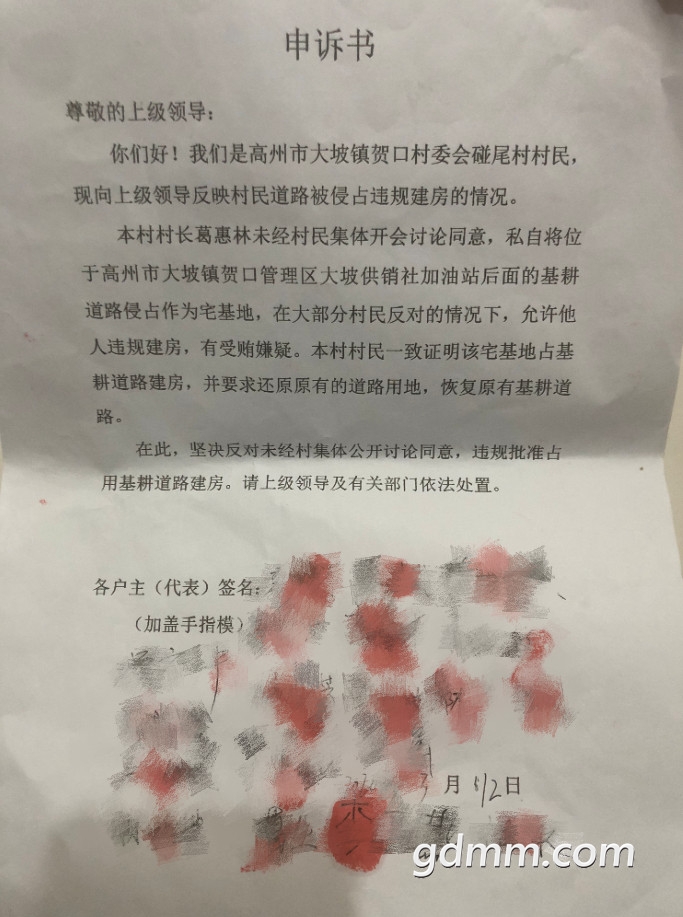 申诉书
尊敬的上级领导：
你们好！我们是高州市大坡镇贺口村委会碰尾村村民，
现向上级领导反映村民道路被侵占违规建房的情况。
本村村长葛惠林未经村民集体开会讨论同意，私自将位
于高州市大坡镇贺口管理区大坡供销社加油站后面的基耕
道路侵占作为宅基地，在大部分村民反对的情况下，允许他
人违规建房，有受贿嫌疑。本村村民一致证明该宅基地占基
耕道路建房，并要求还原原有的道路用地，恢复原有基耕道
路。
在此，坚决反对未经村集体公开讨论同意，违规批准占
用基耕道路建房。请上级领导及有关部门依法处置。
各户主（代表）签名：
（加盖手指模）
月 日
gdmm.com